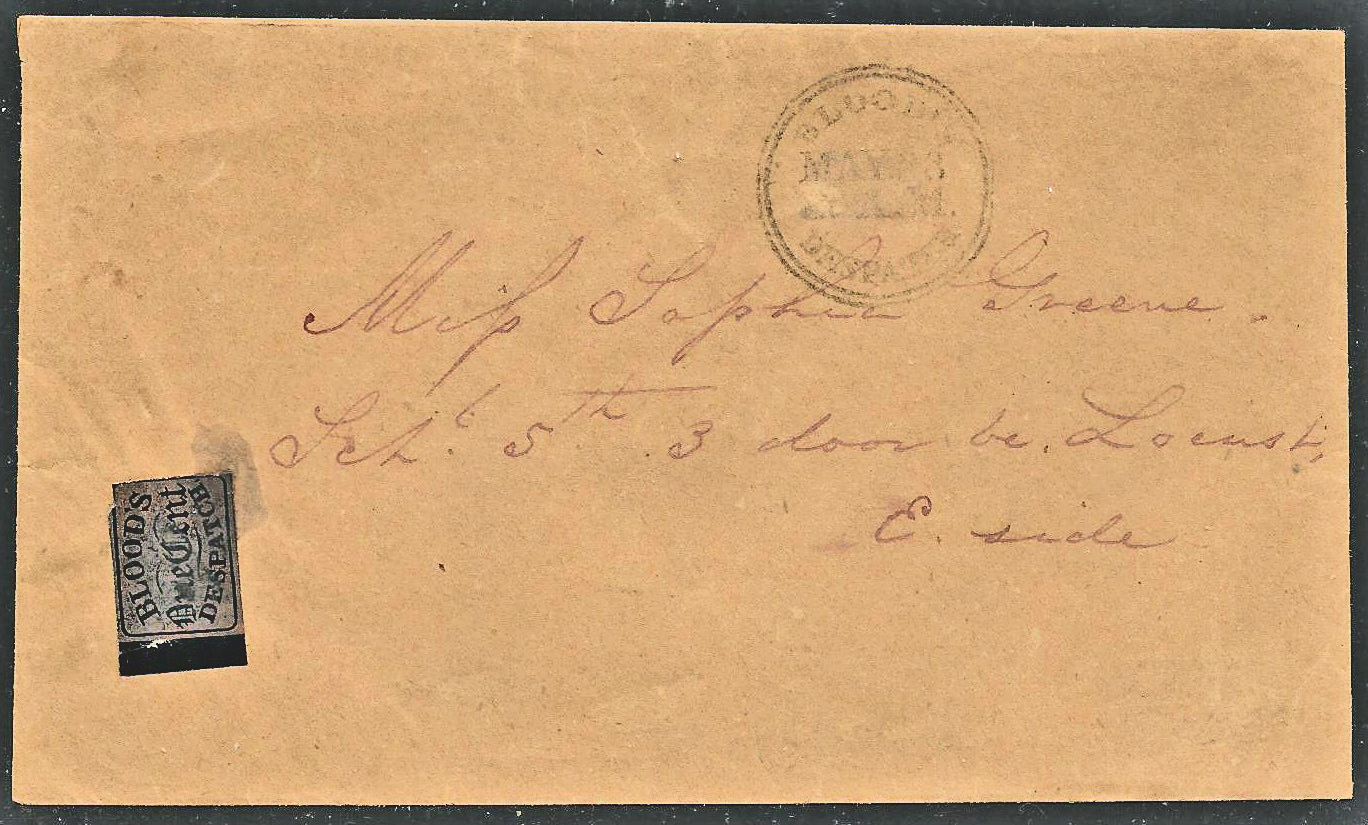 BLOOD'S
MAY
DESPATCH
Miss Sophia Greene.
Sch.l 5th 3 door be. Locust,
E. side
BLOOD'S
One Cent
DESPATCH